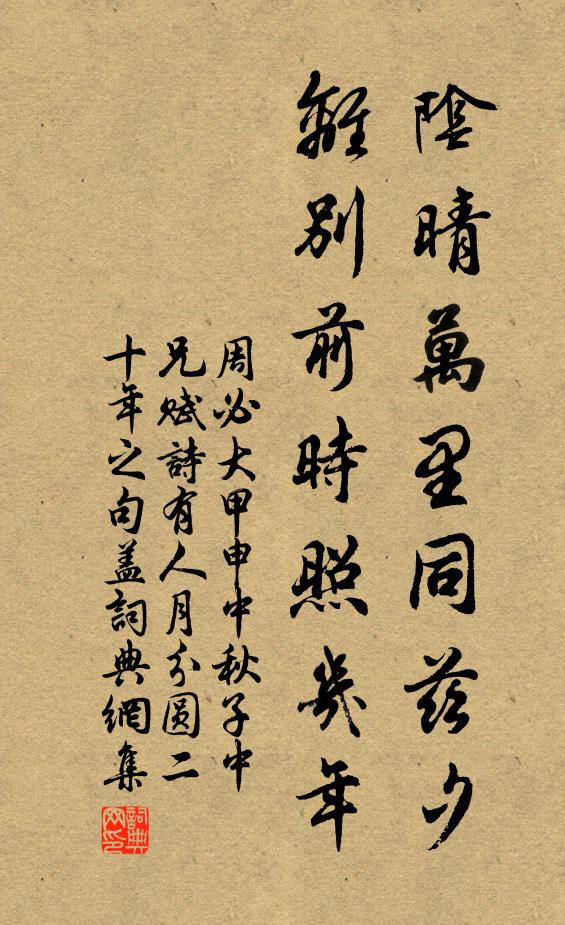 陰晴萬里同茲夕
離別前時照幾年
周必大甲申中秋子中
兄賦詩有人月分圓二
十年之句盖詞典網集
詞典網印